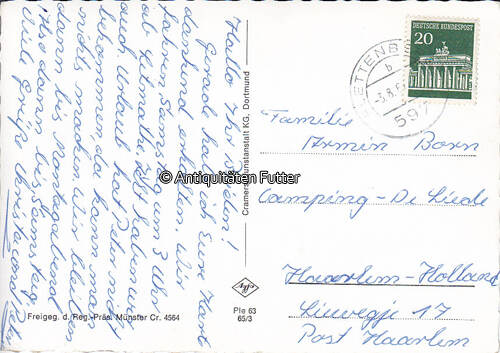 Hallo Ihr Beiden!
Gerade habe ich Eure Karte
dankend erhalten. Wir
fahren Samstag um 3 Uhr
ab Letmathe mit Sabine
Urlaub hat Peter nicht
bekommen, da kann man
nichts machen. Wir bleiben
dann bis Montagabend
Also dann bis Samstag
Viele Grüße Christa und Peter
Freigeg. d. Reg.-Präs. Münster Cr. 4564
Cramers Kunstanstalt KG, Dortmund
Ple 63
65/3
DEUTSCHE BUNDESPOST
20
PLETTENBERG
b
597
Familie
Armin Born
Camping - De Liede
Haarlem - Holland
Liewegje 17
Post Haarlem
© Antiquitäten Futter